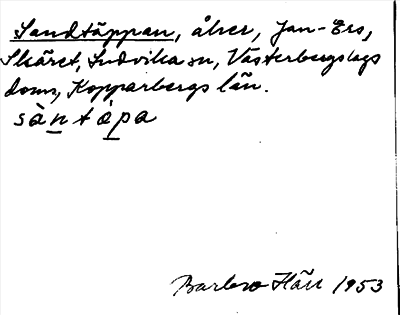 Sandtäppan, åker, Jan-Ers,
Skäret, Ludvika sn, Västerbergslags
doms, Kopparbergs län.
sàntápa
Barbro Häll 1953